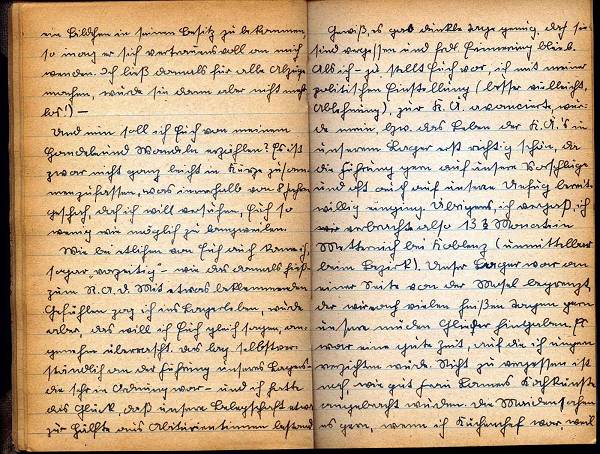 ein Bildchen in seinen Besitz zu bekommen,
so mag er sich vertrauensvoll an mich
wenden. Ich ließ damals für alle Abzüge
machen, wurde sie dann aber nicht mehr
los!) —
Und nun soll ich Euch von meinem
Handel und Wandeln erzählen? Es ist
zwar nicht ganz leicht in Kürze zusam-
menzufassen, was innerhalb von 8 Jahren
geschah, doch ich will versuchen, Euch so
wenig wie möglich zu langweilen.
Wie die etlichen von Euch auch kam ich,
sogar vorzeitig – wie das damals hieß –
zum R.A.d. Mit etwas beklemmenden
Gefühlen zog ich ins Lagerleben, wurde
aber, das will ich Euch gleich sagen, an-
genehm überrascht. Das lag selbstver-
ständlich an der Führung unseres Lagers,
die sehr in Ordnung war – und ich hatte
das Glück, daß unsere Belegschaft etwa
zur Hälfte aus Abiturientinnen bestand.
Gewiß, es gab dunkle Tage genug, doch sie
sind vergessen und frdl. Erinnerung blieb.
Als ich – so stellt Euch vor, ich mit meiner
politischen Einstellung (besser vielleicht,
Ablehnung), zur K.Ä. avancierte, wur-
de mein, bzw. das Leben der K.Ä.'s in
unserem Lager erst richtig schön, da
die Führung gern auf unsere Vorschläge
und oft auch auf unseren Unfug bereit-
willig einging. Übrigens, ich vergaß, ich
verbrachte also 13 ½ Monate in
Metternich bei Koblenz (unmittelbar
beim Bezirk). Unser Lager war an
einer Seite von der Mosel begrenzt,
der wir nach vielen heißen Tagen gern
unsere müden Glieder hingaben. Es
war eine gute Zeit, auf die ich ungern
verzichten würde. Nicht zu vergessen ist
noch, wie gut Frau Kochkünste
angebracht wurden. Die Maiden sahen
es gern, wenn ich Küchenchef war, weil